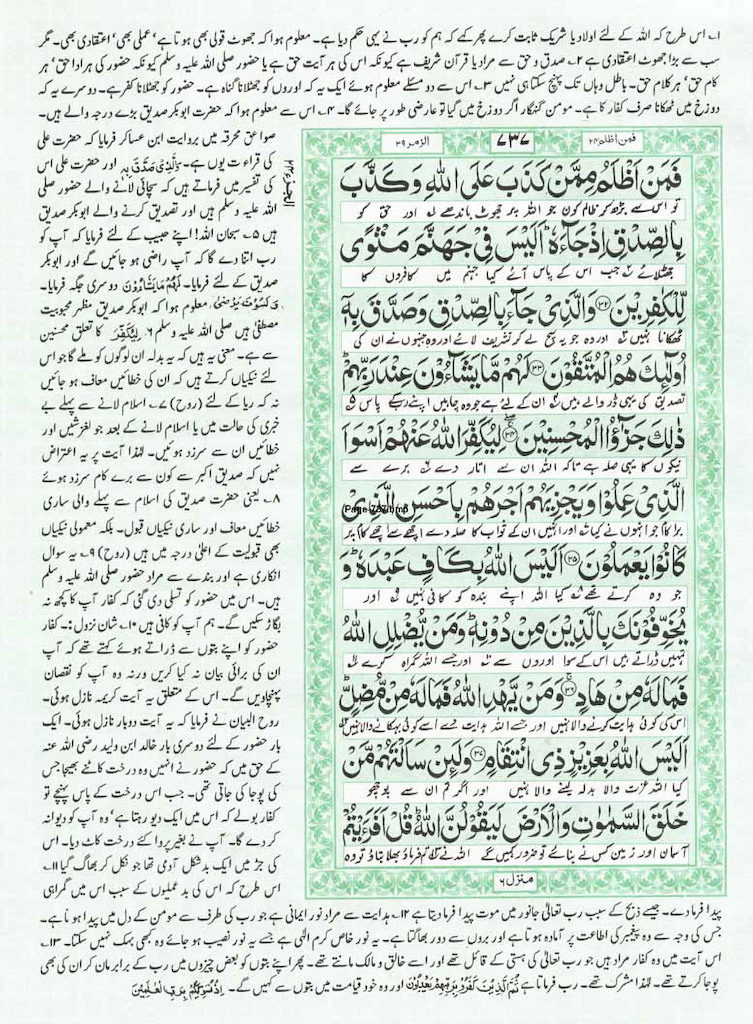 ۱۔ اس طرح کہ اللہ کے لئے اولاد یا شریک ثابت کرے پھر کہے کہ ہم کو رب نے یہی حکم دیا ہے۔ معلوم ہوا کہ جھوٹ قولی بھی ہوتا ہے، عملی بھی، اعتقادی بھی۔ مگر
سب سے بڑا جھوٹ اعتقادی ہے ۲۔ صدق و حق سے مراد یا قرآن شریف ہے کیونکہ اس کی ہر آیت حق ہے یا حضور صلی اللہ علیہ وسلم کیونکہ حضور کی ہر ادا حق، ہر
کام حق، ہر کلام حق۔ باطل وہاں تک پہنچ سکتا ہی نہیں ۳۔ اس سے دو مسئلے معلوم ہوئے ایک یہ کہ اوروں کو جھٹلانا گناہ ہے۔ حضور کو جھٹلانا کفر ہے۔ دوسرے یہ کہ
دوزخ میں ٹھکانا صرف کفار کا ہے۔ مومن گنہگار اگر دوزخ میں گیا تو عارضی طور پر جائے گا۔ ۴۔ اس سے معلوم ہوا کہ حضرت ابوبکر صدیق بڑے درجہ والے ہیں۔
فمن اظلم ۲۴
۷۳۷
الزمر ۳۹
فَمَنْ اَظْلَمُ مِمَّنْ كَذَبَ عَلَى اللّٰهِ وَكَذَّبَ
تو اس سے بڑھ کر ظالم کون جو اللہ پر جھوٹ باندھے اور حق کو
بِالصِّدْقِ اِذْ جَآءَهٗ ؕ اَلَيْسَ فِيْ جَهَنَّمَ مَثْوًى
جھٹلائے جب اس کے پاس آئے کیا جہنم میں کافروں کا
لِّلْكٰفِرِيْنَ ۝۳۲ وَالَّذِيْ جَآءَ بِالصِّدْقِ وَصَدَّقَ بِهٖۤ
ٹھکانا نہیں اور وہ جو یہ سچ لے کر تشریف لائے اور وہ جنہوں نے ان کی
اُولٰٓىِٕكَ هُمُ الْمُتَّقُوْنَ ۝۳۳ لَهُمْ مَّا يَشَآءُوْنَ عِنْدَ رَبِّهِمْ ؕ
تصدیق کی یہی ڈر والے ہیں ان کے لئے ہے جو وہ چاہیں اپنے رب کے پاس
ذٰلِكَ جَزٰٓؤُا الْمُحْسِنِيْنَ ۝۳۴ لِيُكَفِّرَ اللّٰهُ عَنْهُمْ اَسْوَاَ
نیکوں کا یہی صلہ ہے تاکہ اللہ ان سے اتار دے برے سے
الَّذِيْ عَمِلُوْا وَيَجْزِيَهُمْ اَجْرَهُمْ بِاَحْسَنِ الَّذِيْ
Page-737.bmp
برا کام جو انہوں نے کیا اور انہیں ان کے ثواب کا صلہ دے اچھے سے اچھے کام پر
كَانُوْا يَعْمَلُوْنَ ۝۳۵ اَلَيْسَ اللّٰهُ بِكَافٍ عَبْدَهٗ ؕ وَ
جو وہ کرتے تھے کیا اللہ اپنے بندہ کو کافی نہیں اور
يُخَوِّفُوْنَكَ بِالَّذِيْنَ مِنْ دُوْنِهٖ ؕ وَمَنْ يُّضْلِلِ اللّٰهُ
تمہیں ڈراتے ہیں اس کے سوا اوروں سے اور جسے اللہ گمراہ کرے
فَمَا لَهٗ مِنْ هَادٍ ۝۳۶ وَمَنْ يَّهْدِ اللّٰهُ فَمَا لَهٗ مِنْ مُّضِلٍّ ؕ
اس کی کوئی ہدایت کرنے والا نہیں اور جسے اللہ ہدایت دے اسے کوئی بہکانے والا نہیں
اَلَيْسَ اللّٰهُ بِعَزِيْزٍ ذِي انْتِقَامٍ ۝۳۷ وَلَىِٕنْ سَاَلْتَهُمْ مَّنْ
کیا اللہ عزت والا بدلہ لینے والا نہیں اور اگر تم ان سے پوچھو
خَلَقَ السَّمٰوٰتِ وَالْاَرْضَ لَيَقُوْلُنَّ اللّٰهُ ؕ قُلْ اَفَرَءَيْتُمْ
آسمان اور زمین کس نے بنائے تو ضرور کہیں گے اللہ نے تم فرماؤ بھلا بتاؤ تو وہ
منزل ۶
الجزء ۲۴
صواعق محرقہ میں بروایت ابن عساکر فرمایا کہ حضرت علی
کی قراءت یوں ہے۔ وَالَّذِیْ صَدَّقَ بِہٖ اور حضرت علی اس
کی تفسیر میں فرماتے ہیں کہ سچائی لانے والے حضور صلی
اللہ علیہ وسلم ہیں اور تصدیق کرنے والے ابوبکر صدیق
ہیں ۵۔ سبحان اللہ! اپنے حبیب کے لئے فرمایا کہ آپ کو
رب اتنا دے گا کہ آپ راضی ہو جائیں گے اور ابوبکر
صدیق کے لئے فرمایا۔ لَهُمْ مَّا يَشَآءُوْنَ دوسری جگہ فرمایا۔
وَلَسَوْفَ يَرْضٰى معلوم ہوا کہ ابوبکر صدیق مظہر محبوبیت
مصطفیٰ ہیں صلی اللہ علیہ وسلم ۶۔ لِيُكَفِّرَ کا تعلق محسنین
سے ہے۔ معنی یہ ہیں کہ یہ بدلہ ان لوگوں کو ملے گا جو اس
لئے نیکیاں کرتے ہیں کہ ان کی خطائیں معاف ہو جائیں
نہ کہ ریا کے لئے (روح) ۷۔ اسلام لانے سے پہلے بے
خبری کی حالت میں یا اسلام لانے کے بعد جو لغزشیں اور
خطائیں ان سے سرزد ہوئیں۔ لہٰذا آیت پر یہ اعتراض
نہیں کہ صدیق اکبر سے کون سے برے کام سرزد ہوئے
۸۔ یعنی حضرت صدیق کی اسلام سے پہلے والی ساری
خطائیں معاف اور ساری نیکیاں قبول۔ بلکہ معمولی نیکیاں
بھی قبولیت کے اعلیٰ درجہ میں ہیں (روح) ۹۔ یہ سوال
انکاری ہے اور بندے سے مراد حضور صلی اللہ علیہ وسلم
ہیں۔ اس میں حضور کو تسلی دی گئی کہ کفار آپ کا کچھ نہ
بگاڑ سکیں گے۔ ہم آپ کو کافی ہیں ۱۰۔ شان نزول:۔ کفار
حضور کو اپنے بتوں سے ڈراتے ہوئے کہتے تھے کہ آپ
ان کی برائی بیان نہ کیا کریں ورنہ وہ آپ کو نقصان
پہنچاویں گے۔ اس کے متعلق یہ آیت کریمہ نازل ہوئی۔
روح البیان نے فرمایا کہ یہ آیت دوبار نازل ہوئی۔ ایک
بار حضور کے لئے دوسری بار خالد ابن ولید رضی اللہ عنہ
کے حق میں کہ حضور نے انہیں وہ درخت کاٹنے بھیجا جس
کی پوجا کی جاتی تھی۔ جب اس درخت کے پاس پہنچے تو
کفار بولے کہ اس میں ایک دیو رہتا ہے، وہ آپ کو دیوانہ
کر دے گا۔ آپ نے بغیر پروا کئے درخت کاٹ دیا۔ اس
کی جڑ میں ایک بدشکل آدمی تھا جو نکل کر بھاگ گیا ۱۱۔
اس طرح کہ اس کی بدعملیوں کے سبب اس میں گمراہی
پیدا فرما دے۔ جیسے ذبح کے سبب رب تعالیٰ جانور میں موت پیدا فرما دیتا ہے ۱۲۔ ہدایت سے مراد نور ایمانی ہے جو رب کی طرف سے مومن کے دل میں پیدا ہوتا ہے۔
جس کی وجہ سے وہ پیغمبر کی اطاعت پر آمادہ ہوتا ہے اور بروں سے دور بھاگتا ہے۔ یہ نور خاص کرم الٰہی ہے جسے یہ نور نصیب ہو جائے وہ کبھی بہک نہیں سکتا۔ ۱۳۔
اس آیت میں وہ کفار مراد ہیں جو رب تعالیٰ کی ہستی کے قائل تھے اور اسے خالق و مالک مانتے تھے۔ پھر اپنے بتوں کو بعض چیزوں میں رب کے برابر مان کر ان کی بھی
پوجا کرتے تھے۔ لہٰذا مشرک تھے۔ رب فرماتا ہے ثُمَّ الَّذِيْنَ كَفَرُوْا بِرَبِّهِمْ يَعْدِلُوْنَ اور وہ خود قیامت میں بتوں سے کہیں گے۔ اِذْ نُسَوِّيْكُمْ بِرَبِّ الْعٰلَمِيْنَ